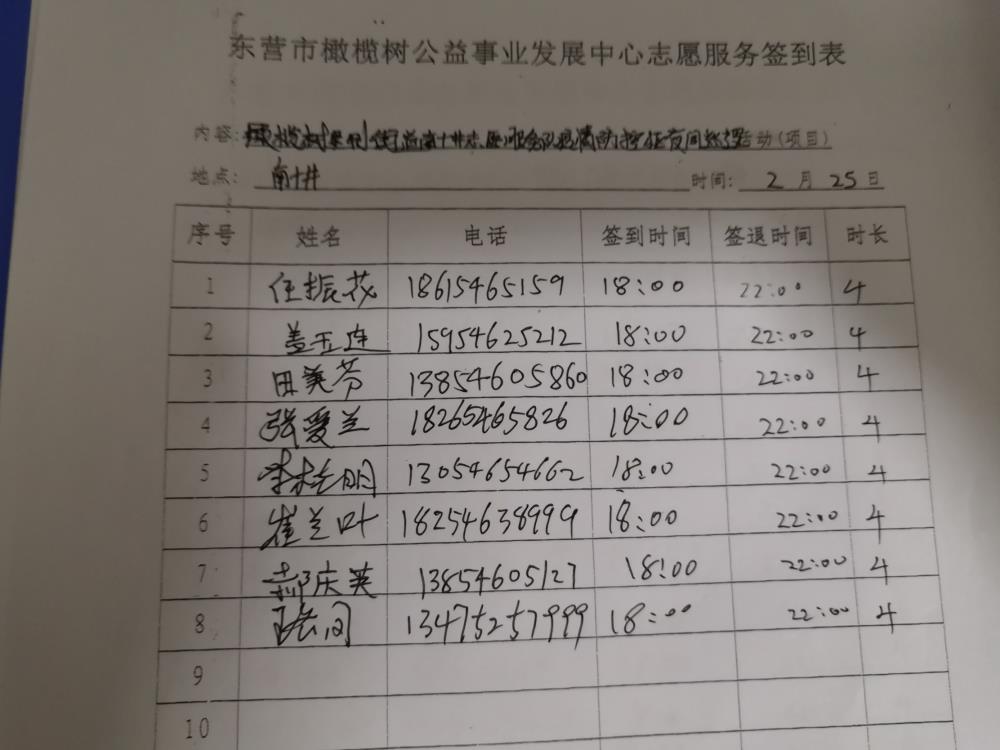 东营市橄榄树公益事业发展中心志愿服务签到表
内容: 活动(项目)
地点: 南十井 时间: 2 月 25 日
序号 姓名 电话 签到时间 签退时间 时长
1 任振花 18615465159 18:00 22:00 4
2 盖玉连 15954625212 18:00 22:00 4
3 田英芬 13854605860 18:00 22:00 4
4 张爱兰 18265465826 18:00 22:00 4
5 李桂明 13054654662 18:00 22:00 4
6 崔兰叶 18254638999 18:00 22:00 4
7 郝庆英 13854605127 18:00 22:00 4
8 13475257999 18:00 22:00 4
9
10